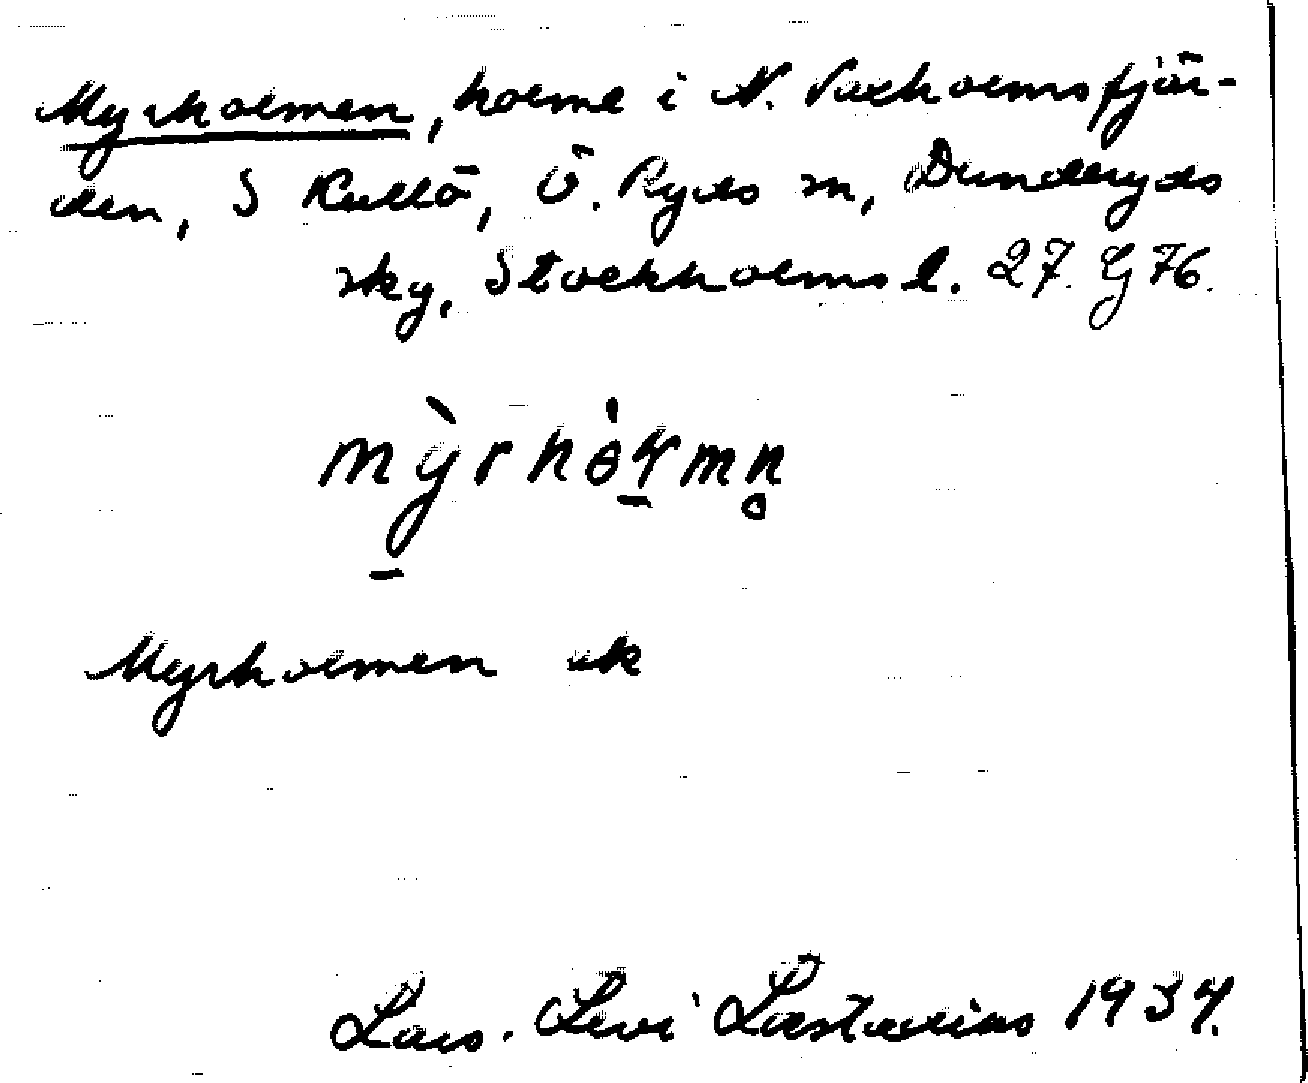 Myrholmen, holme i N. Vaxholmsfjär-
den, S Kullö, Ö. Ryds sn, Danderyds
skg, Stockholms l. 27. G 76.
Myrholmen ek
Lars-Levi Læstadius 1934.